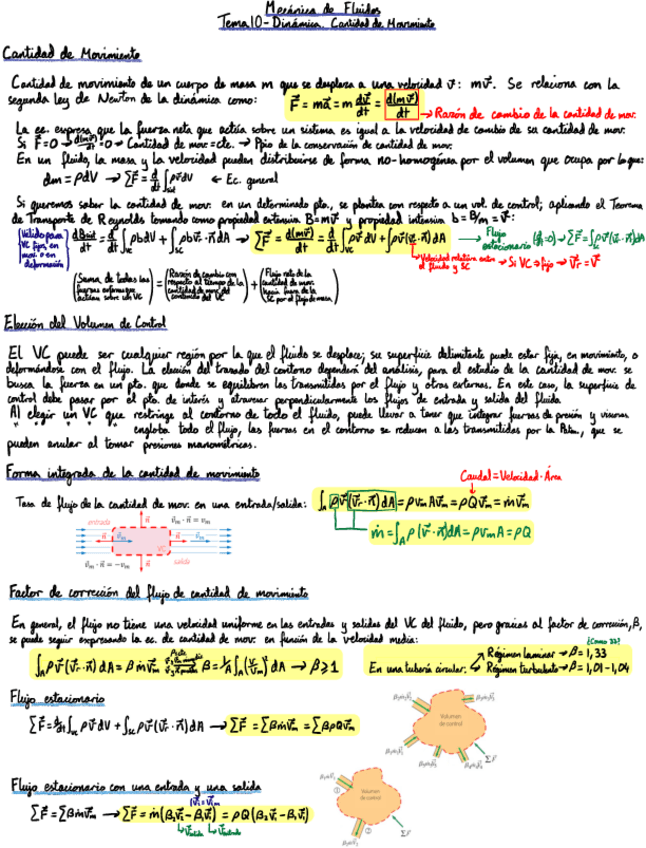 Mecánica de Fluidos
Tema 10 - Dinámica. Cantidad de Movimiento
Cantidad de Movimiento
Cantidad de movimiento de un cuerpo de masa m que se desplaza a una velocidad v⃗: mv⃗. Se relaciona con la
segunda ley de Newton de la dinámica como: F⃗ = ma⃗ = m dv⃗/dt = d(mv⃗)/dt → Razón de cambio de la cantidad de mov.
La ec. expresa que la fuerza neta que actúa sobre un sistema es igual a la velocidad de cambio de su cantidad de mov.
Si F⃗=0 → d(mv⃗)/dt=0 → Cantidad de mov.=cte. → Ppio de la conservación de cantidad de mov.
En un fluido, la masa y la velocidad pueden distribuirse de forma no-homogénea por el volumen que ocupa por lo que:
dm = ρdV → ΣF⃗ = d/dt ∫sist ρv⃗dV ← Ec. general
Si queremos saber la cantidad de mov. en un determinado pto., se plantea con respecto a un vol. de control; aplicando el Teorema
de Transporte de Reynolds tomando como propiedad extensiva B=mv⃗ y propiedad intensiva b = B/m = v⃗:
Válido para VC fijos, en mov. o en deformación
dBsist/dt = d/dt ∫vc ρbdV + ∫sc ρbv⃗r·n⃗dA → ΣF⃗ = d(mv⃗)/dt = d/dt ∫vc ρv⃗dV + ∫sc ρv⃗(v⃗r·n⃗)dA → Flujo estacionario (d/dt=0) → ΣF⃗=∫ρv⃗(v⃗r·n⃗)dA
Velocidad relativa entre el fluido y SC → Si VC fijo → v⃗r = v⃗
(Suma de todas las fuerzas externas que actúan sobre un VC) = (Razón de cambio con respecto al tiempo de la cantidad de mov. del contenido del VC) + (Flujo neto de la cantidad de mov. hacia fuera de la SC por el flujo de masa)
Elección del Volumen de Control
El VC puede ser cualquier región por la que el fluido se desplace; su superficie delimitante puede estar fija, en movimiento, o
deformándose con el flujo. La elección del trazado del contorno dependerá del análisis, para el estudio de la cantidad de mov. se
busca la fuerza en un pto. que donde se equilibren las transmitidas por el flujo y otras externas. En este caso, la superficie de
control debe pasar por el pto. de interés y atravesar perpendicularmente los flujos de entrada y salida del fluido.
Al elegir un VC que restringe al contorno de todo el fluido, puede llevar a tener que integrar fuerzas de presión y viscosas
" " " " engloba todo el flujo, las fuerzas en el contorno se reducen a las transmitidas por la Patm, que se
pueden anular al tomar presiones manométricas.
Forma integrada de la cantidad de movimiento
Caudal = Velocidad · Área
Tasa de flujo de la cantidad de mov. en una entrada/salida: ∫A ρv⃗(v⃗r·n⃗)dA = ρvmAv⃗m = ρQv⃗m = ṁv⃗m
ṁ = ∫A ρ(v⃗·n⃗)dA = ρvmA = ρQ
entrada v⃗m · n⃗ = vm
n⃗ v⃗m n⃗ v⃗m n⃗
VC
v⃗m · n⃗ = −vm n⃗ salida
Factor de corrección del flujo de cantidad de movimiento
En general, el flujo no tiene una velocidad uniforme en las entradas y salidas del VC del fluido, pero gracias al factor de corrección, β,
se puede seguir expresando la ec. de cantidad de mov. en función de la velocidad media:
¿Como 33?
∫A ρv⃗(v⃗r·n⃗)dA = βṁv⃗m → β = 1/A ∫A (v/vm)² dA → β ≥ 1
En una tubería circular: Régimen laminar → β = 1,33
Régimen turbulento → β = 1,01 - 1,04
Flujo estacionario
ΣF⃗ = d/dt ∫vc ρv⃗dV + ∫sc ρv⃗(v⃗r·n⃗)dA → ΣF⃗ = Σβṁv⃗m = ΣβρQv⃗m
Volumen
de control
ΣF⃗
Flujo estacionario con una entrada y una salida
ΣF⃗ = Σβṁv⃗m → ΣF⃗ = ṁ(β₂v⃗₂ - β₁v⃗₁) = ρQ(β₂v⃗₂ - β₁v⃗₁)
Vsalida Ventrada
①
Volumen
de control
②
ΣF⃗